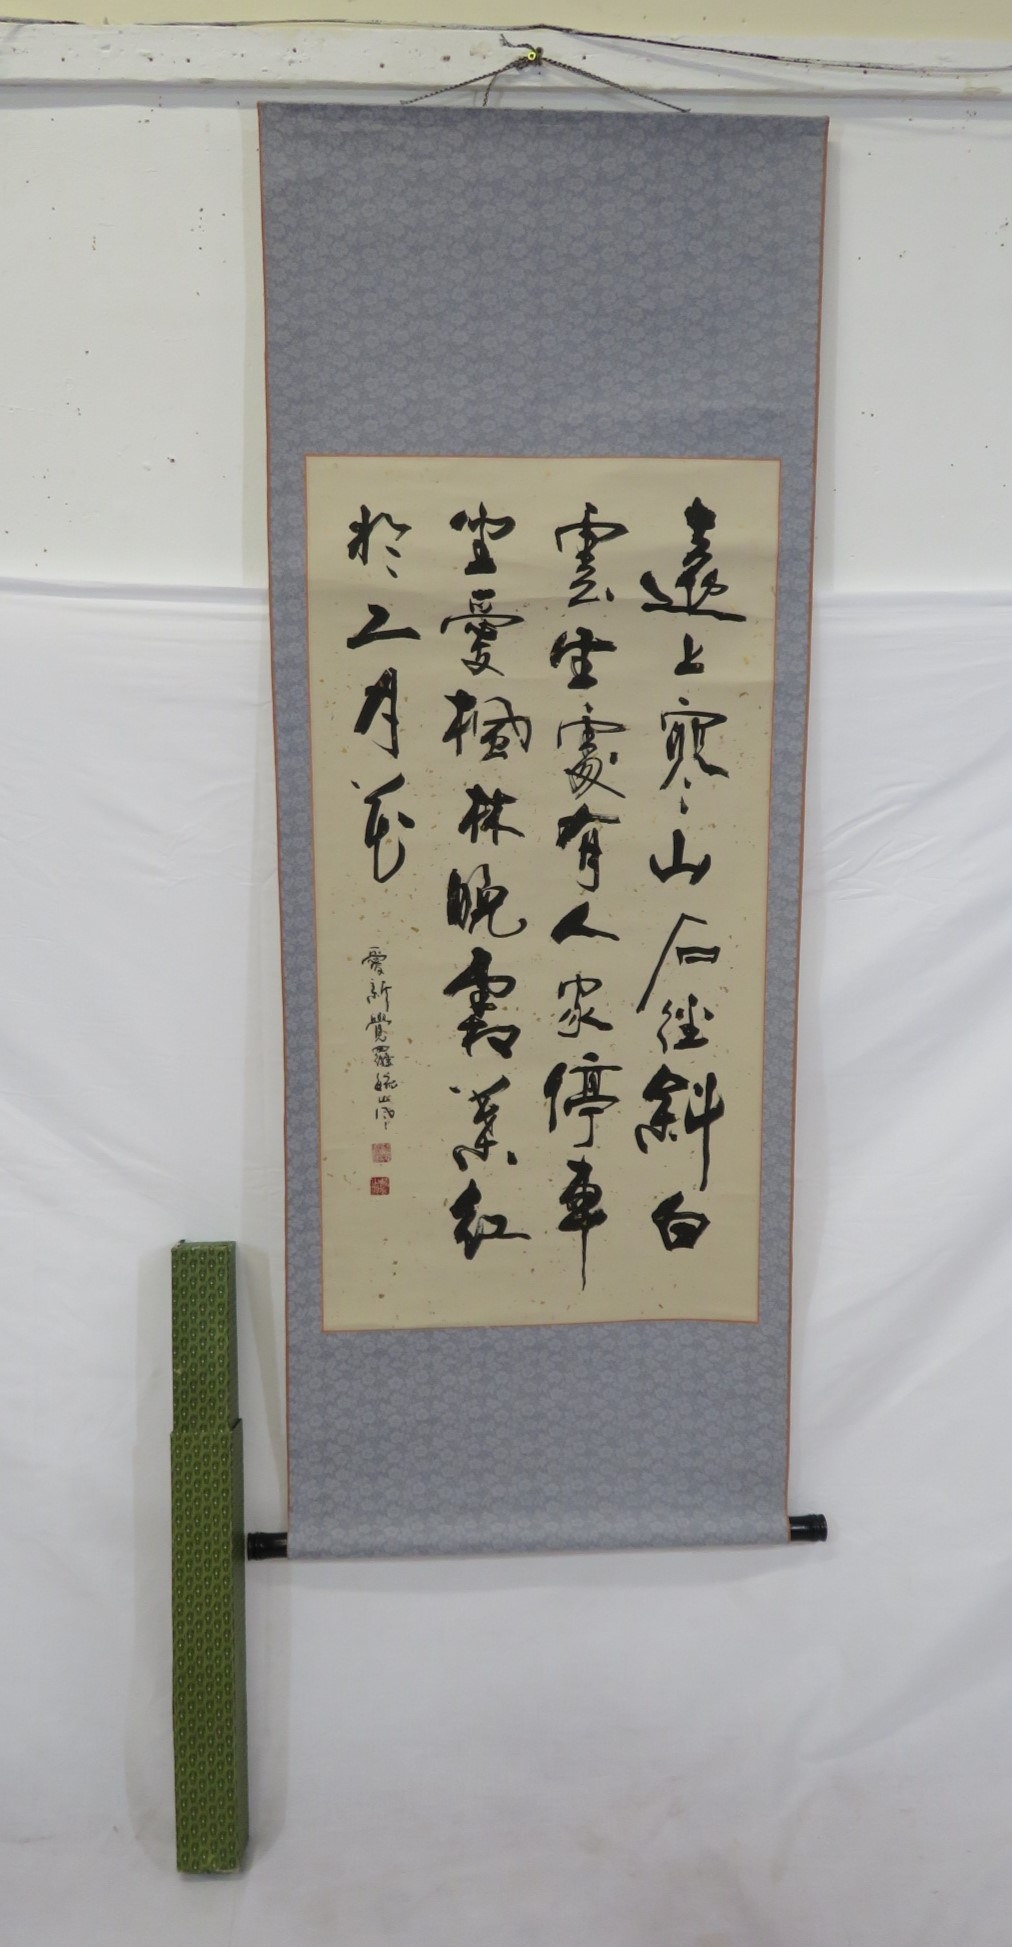 遠上寒山石徑斜白
雲生處有人家停車
坐愛楓林晚霜葉紅
於二月花
愛新覺羅毓嵒